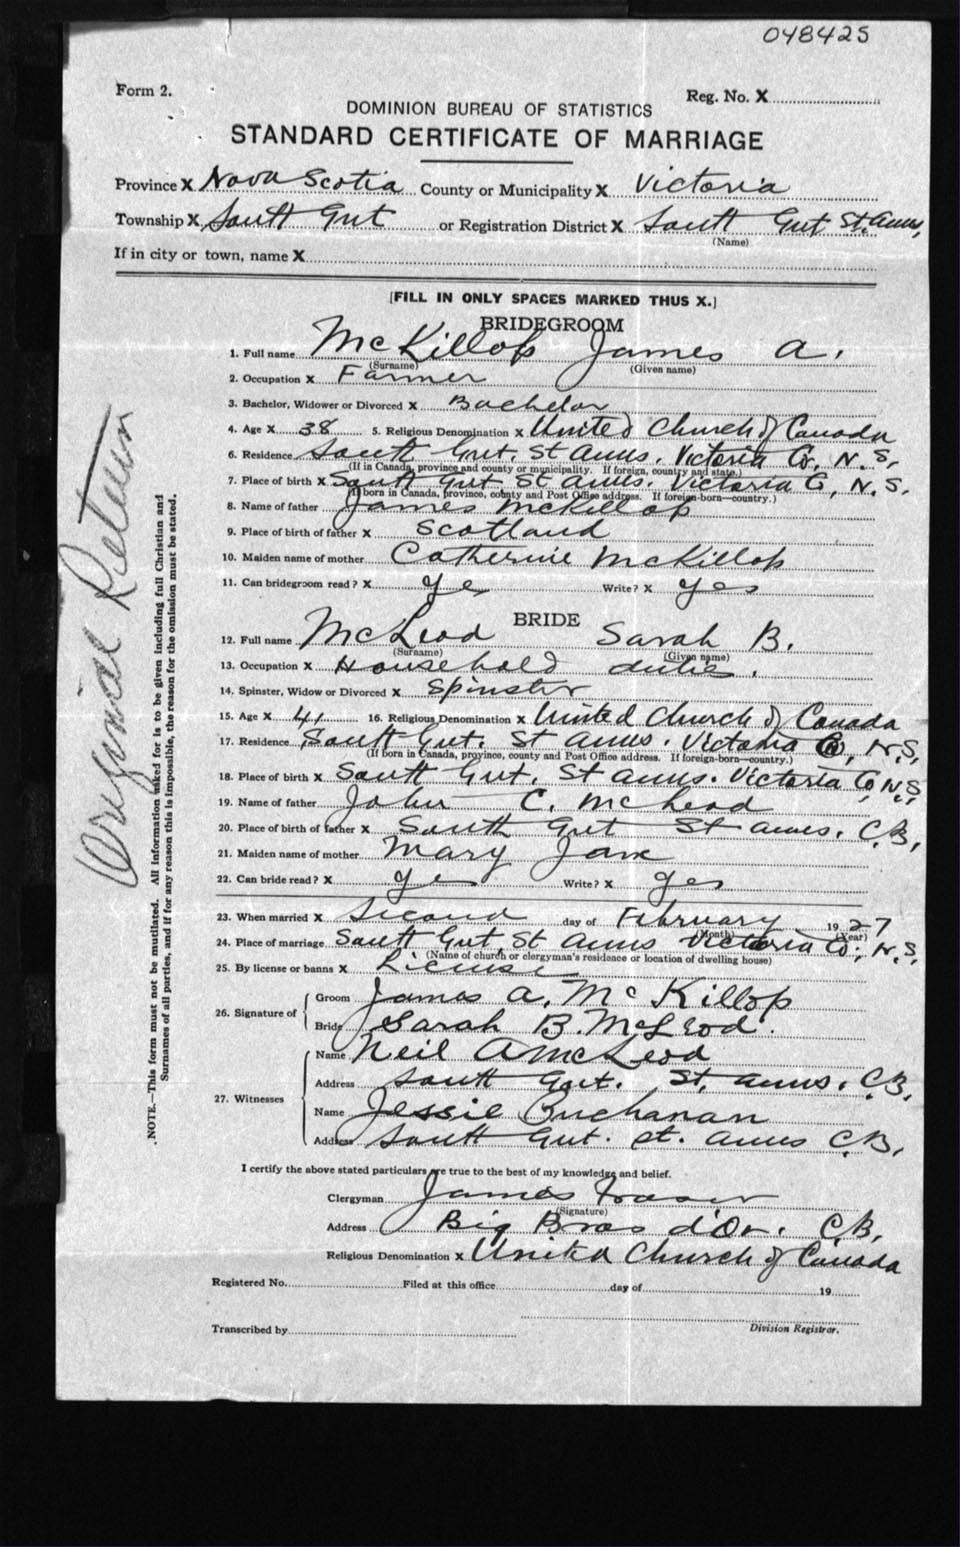 048425
Form 2.
Reg. No. X
DOMINION BUREAU OF STATISTICS
STANDARD CERTIFICATE OF MARRIAGE
Province X Nova Scotia County or Municipality X Victoria
Township X South Gut or Registration District X South Gut St. Anns,
(Name)
If in city or town, name X
[FILL IN ONLY SPACES MARKED THUS X.]
BRIDEGROOM
1. Full name McKillop James A.
(Surname) (Given name)
2. Occupation X Farmer
3. Bachelor, Widower or Divorced X Bachelor
4. Age X 38 5. Religious Denomination X United Church of Canada
6. Residence South Gut. St Anns. Victoria Co, N.S,
(If in Canada, province and county or municipality. If foreign, country and state.)
7. Place of birth X South Gut St Anns. Victoria Co, N.S.
(If born in Canada, province, county and Post Office address. If foreign-born—country.)
8. Name of father James McKillop
9. Place of birth of father X Scotland
10. Maiden name of mother Catherine McKillop
11. Can bridegroom read? X yes Write? X yes
BRIDE
12. Full name McLeod Sarah B.
(Surname) (Given name)
13. Occupation X Household duties.
14. Spinster, Widow or Divorced X Spinster
15. Age X 41 16. Religious Denomination X United Church of Canada
17. Residence South Gut. St Anns. Victoria Co, N.S,
(If born in Canada, province, county and Post Office address. If foreign-born—country.)
18. Place of birth X South Gut. St Anns. Victoria Co, N.S,
19. Name of father John C. McLeod
20. Place of birth of father X South Gut St Anns. C.B,
21. Maiden name of mother Mary Jane
22. Can bride read? X yes Write? X yes
23. When married X Second day of February 1927
(Month) (Year)
24. Place of marriage South Gut, St Anns Victoria Co, N.S,
(Name of church or clergyman's residence or location of dwelling house)
25. By license or banns X License
26. Signature of Groom James A. McKillop
Bride Sarah B. McLeod.
27. Witnesses Name Neil A McLeod
Address South Gut. St. Anns. C.B,
Name Jessie Buchanan
Address South Gut. St. Anns C.B,
I certify the above stated particulars are true to the best of my knowledge and belief.
Clergyman James Fraser
(Signature)
Address Big Bras d'Or. C.B,
Religious Denomination X United Church of Canada
Registered No. Filed at this office day of 19
Transcribed by Division Registrar.
Original Return
NOTE.—This form must not be mutilated. All information asked for is to be given including full Christian and
Surnames of all parties, and if for any reason this is impossible, the reason for the omission must be stated.